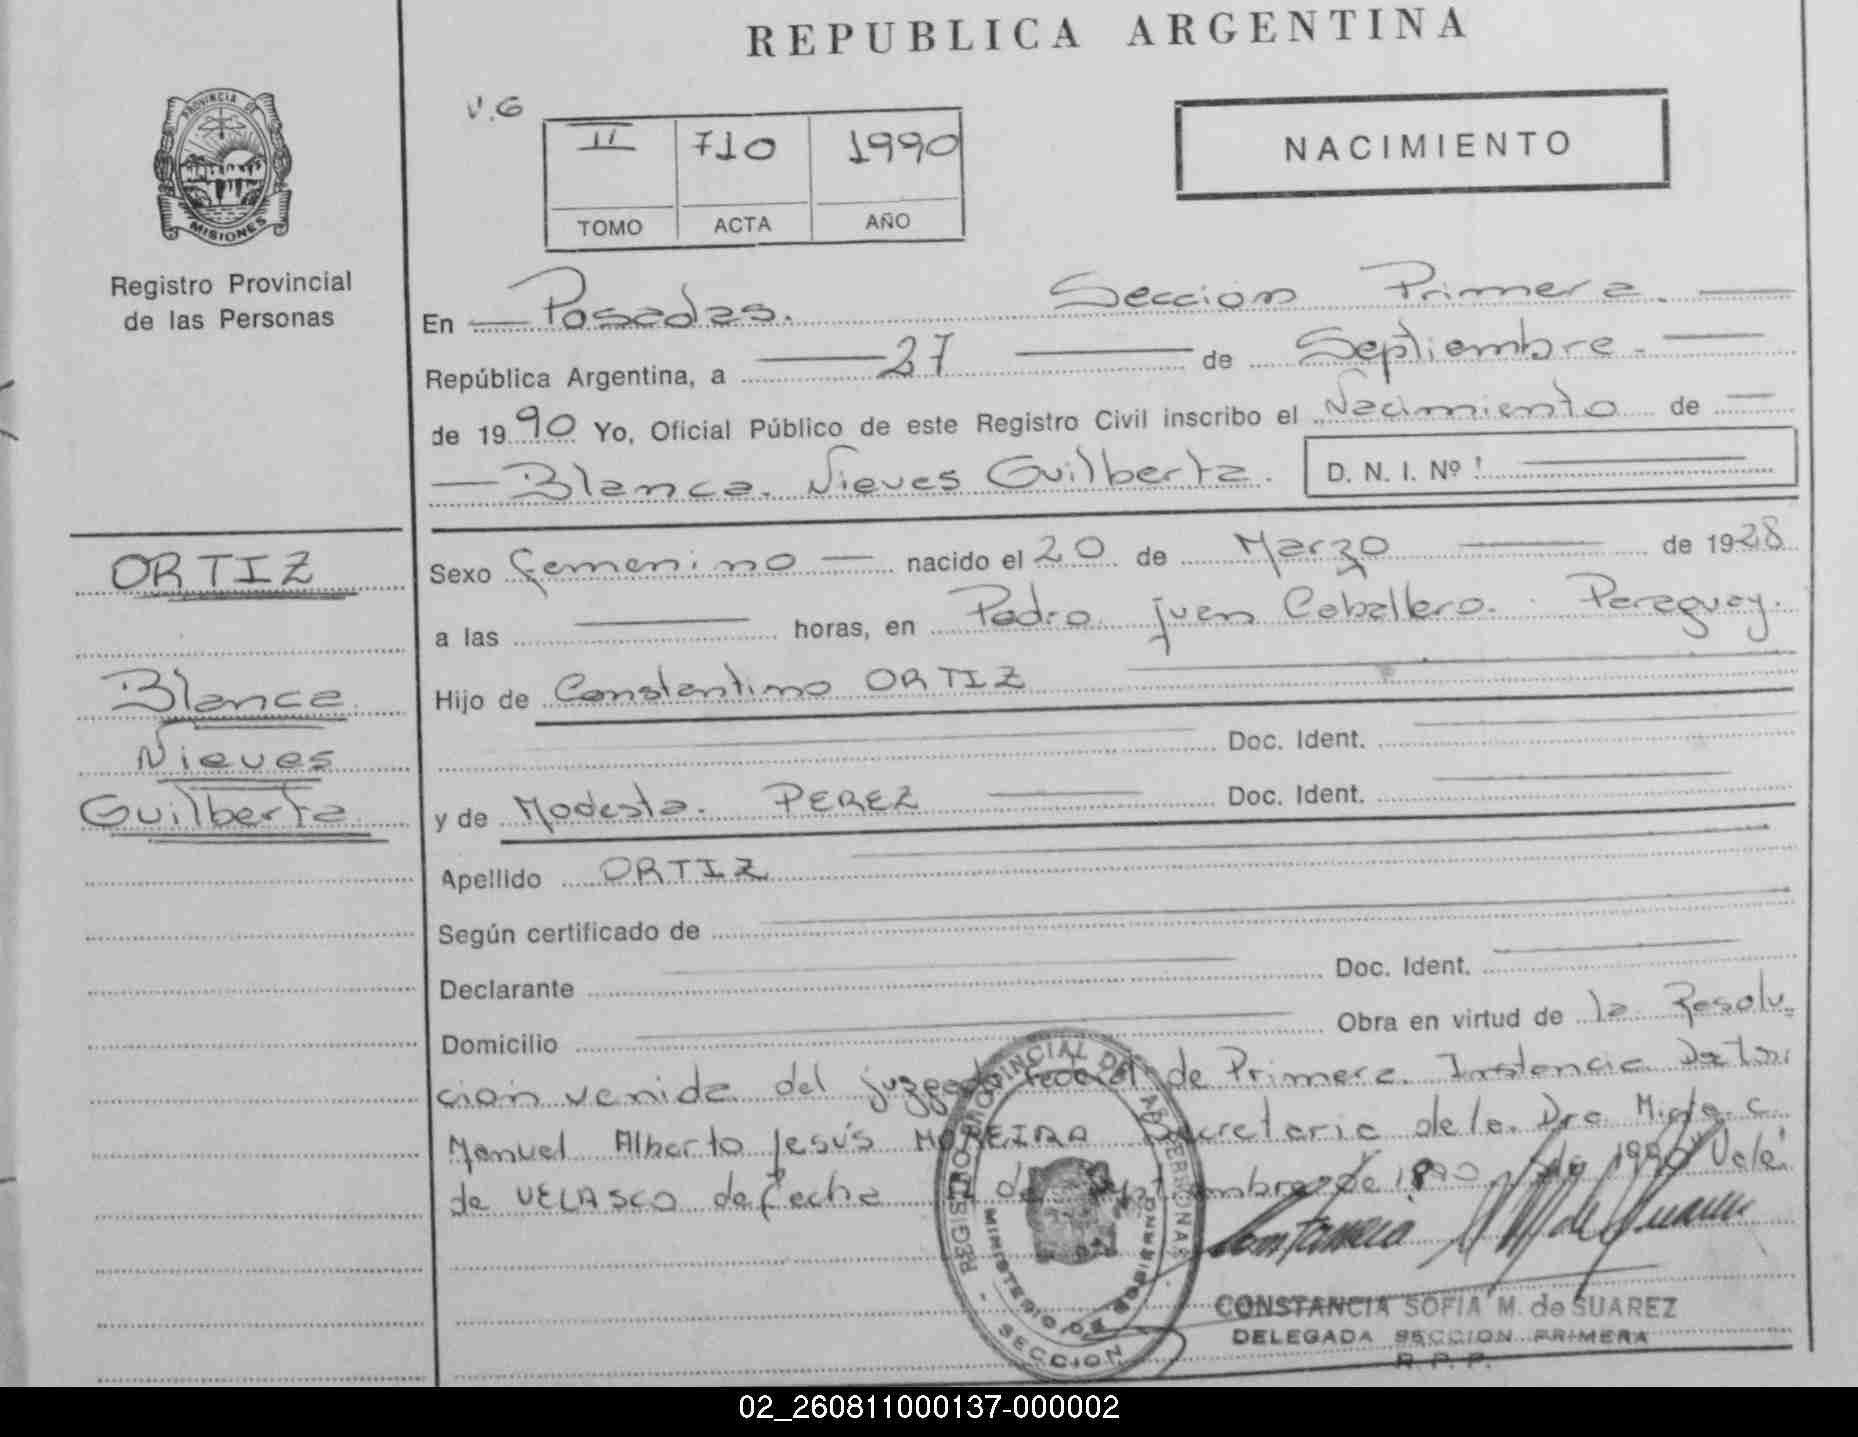 REPUBLICA ARGENTINA
V.G
II 710 1990
TOMO ACTA AÑO
NACIMIENTO
PROVINCIA DE
MISIONES
Registro Provincial
de las Personas
En Posadas. Seccion Primera.
República Argentina, a 27 de Septiembre.
de 1990 Yo, Oficial Público de este Registro Civil inscribo el Nacimiento de
Blanca. Nieves Guilberta. D. N. I. Nº
ORTIZ
Blanca
Nieves
Guilberta
Sexo Femenino nacido el 20 de Marzo de 1928
a las horas, en Pedro juan Caballero. Paraguay.
Hijo de Constantino ORTIZ
Doc. Ident.
y de Modesta. PEREZ Doc. Ident.
Apellido ORTIZ
Según certificado de
Declarante Doc. Ident.
Domicilio Obra en virtud de la Resolu=
cion venida del juzgado Federal de Primera Instancia
Manuel Alberto Jesús MOREIRA Secretaria de la. Dra
de VELASCO de fecha de Septiembre de 1990
REGISTRO PROVINCIAL DE LAS PERSONAS
MINISTERIO DE GOBIERNO
SECCION
CONSTANCIA SOFIA M. de SUAREZ
DELEGADA SECCION PRIMERA
R. P. P.
02_260811000137-000002